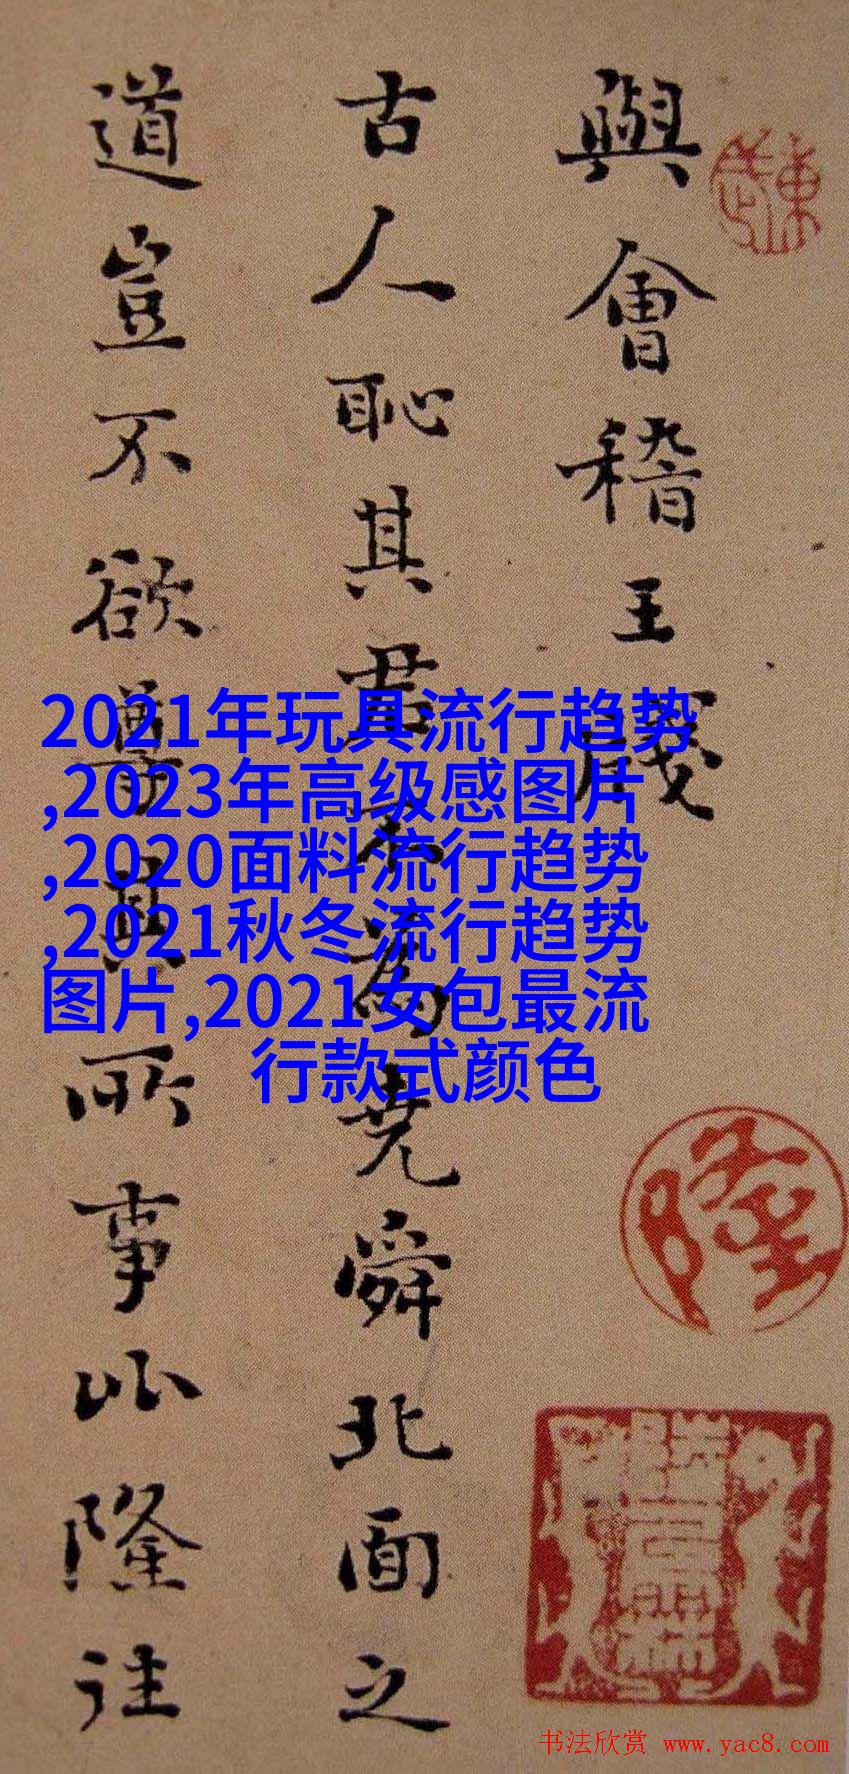 與會稽王牋
古人恥其君不為堯舜北面之
道豈不欲尊其所事比隆往
2021年玩具流行趋势
,2023年高级感图片
,2020面料流行趋势
,2021秋冬流行趋势
图片,2021女包最流
行款式颜色
隆
书法欣赏 www.yac8.com